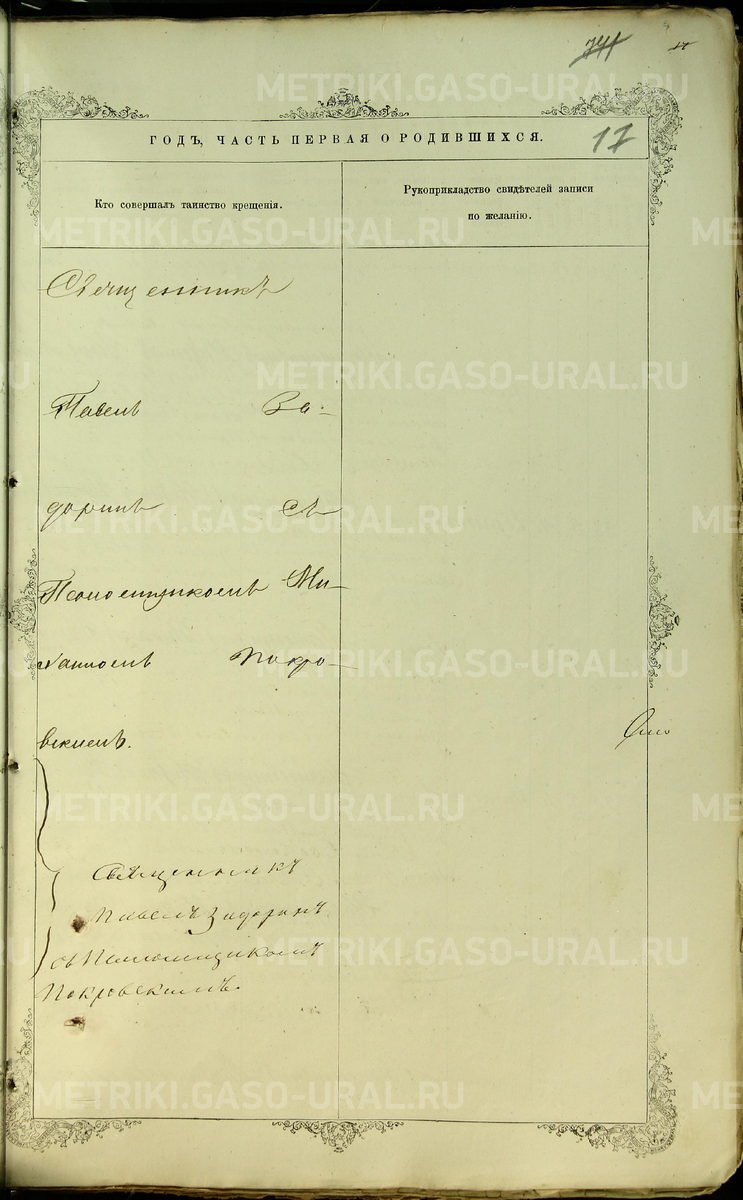 741
17
ГОДЪ, ЧАСТЬ ПЕРВАЯ О РОДИВШИХСЯ.
17
Кто совершалъ таинство крещенія.
Рукоприкладство свидѣтелей записи
по желанію.
Священникъ
Павелъ За-
доринъ съ
Псаломщикомъ Ми-
хаиломъ Покро-
вскимъ.
Священникъ
Павелъ Задоринъ
съ Псаломщикомъ
Покровскимъ.
METRIKI.GASO-URAL.RU